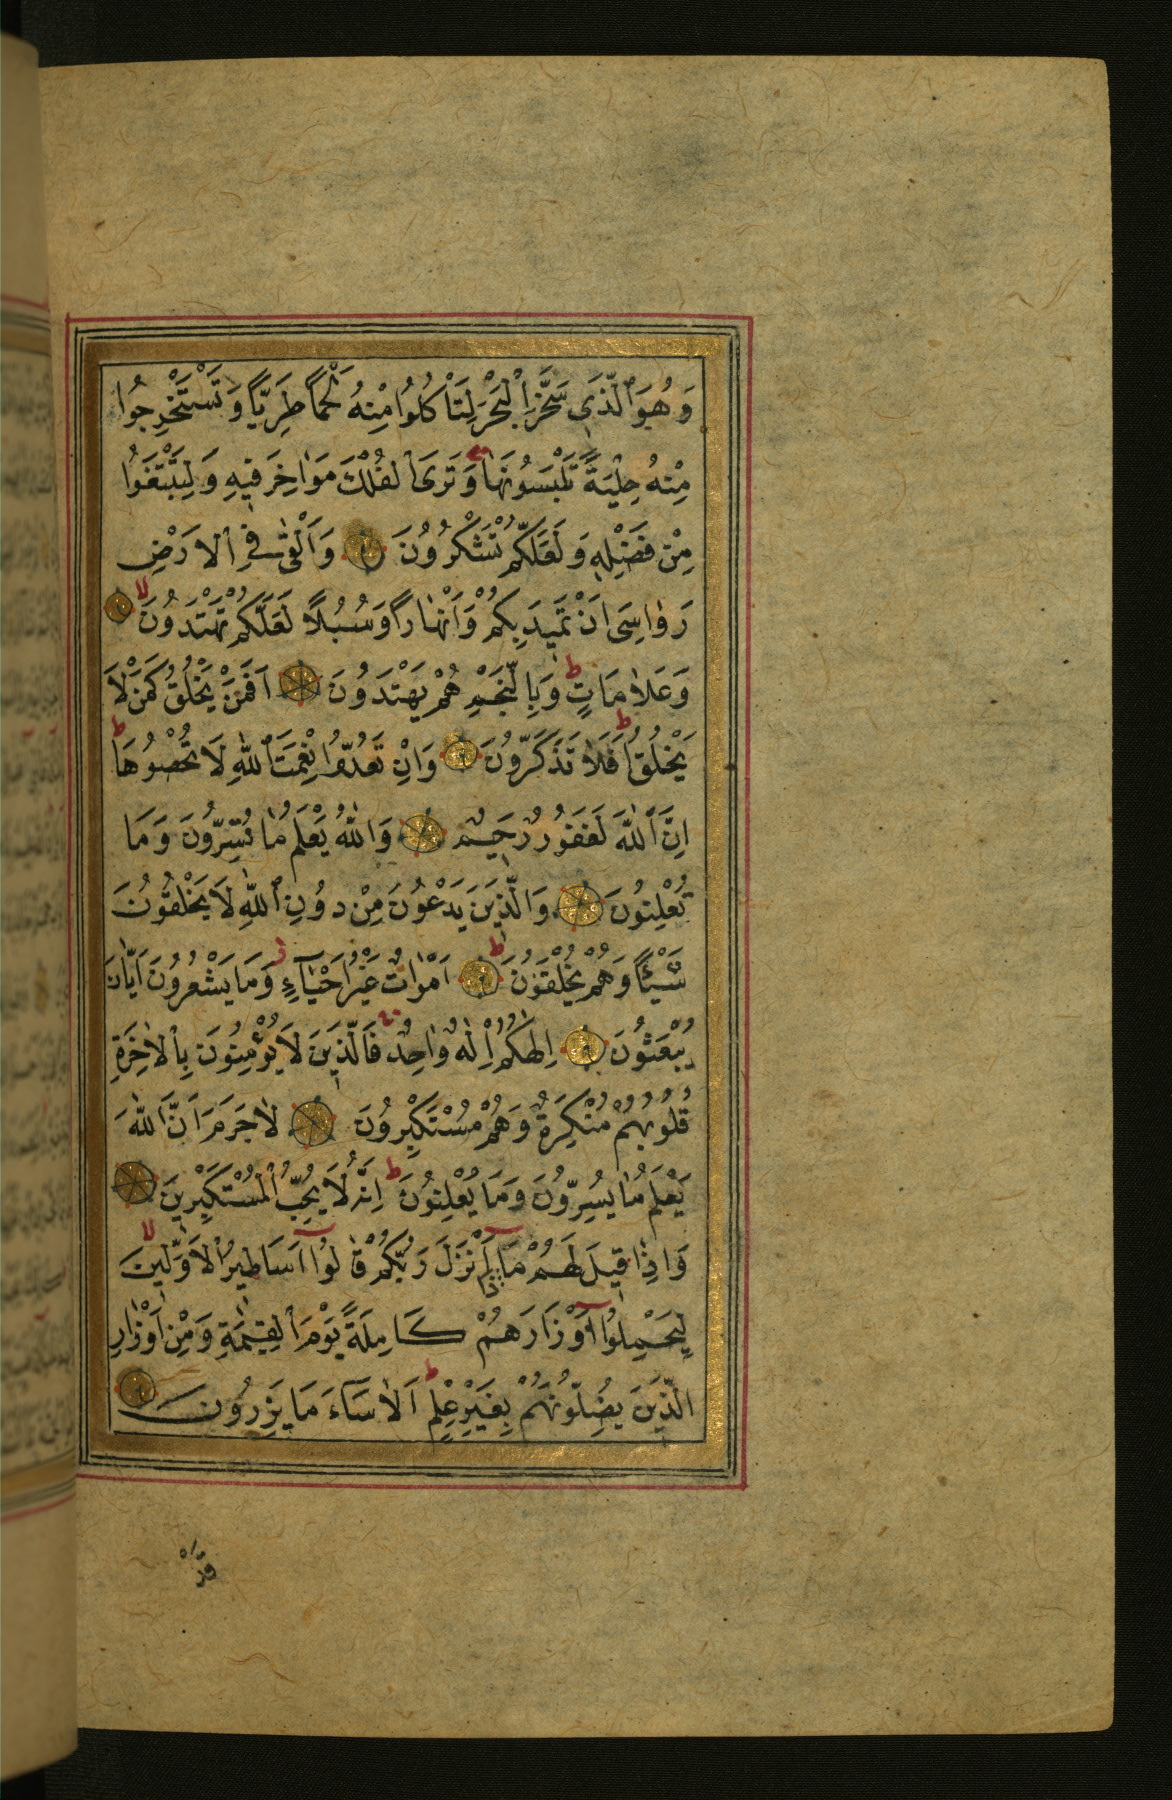 وَهُوَ ٱلَّذِى سَخَّرَ ٱلْبَحْرَ لِتَاْكُلُوا مِنْهُ لَحْمًا طَرِيًّا وَتَسْتَخْرِجُوا
مِنْهُ حِلْيَةً تَلْبَسُونَهَا وَتَرَى ٱلْفُلْكَ مَوَاخِرَ فِيهِ وَلِتَبْتَغُوا
مِنْ فَضْلِهِ وَلَعَلَّكُمْ تَشْكُرُونَ وَاَلْقٰى فِى ٱلْاَرْضِ
رَوَاسِىَ اَنْ تَمِيدَ بِكُمْ وَاَنْهَارًا وَسُبُلًا لَعَلَّكُمْ تَهْتَدُونَ لا
وَعَلَامَاتٍ ط وَبِالنَّجْمِ هُمْ يَهْتَدُونَ اَفَمَنْ يَخْلُقُ كَمَنْ لَا
يَخْلُقُ ط اَفَلَا تَذَكَّرُونَ وَاِنْ تَعُدُّوا نِعْمَتَ ٱللّٰهِ لَا تُحْصُوهَا ط
اِنَّ ٱللّٰهَ لَغَفُورٌ رَحِيمٌ وَاللّٰهُ يَعْلَمُ مَا تُسِرُّونَ وَمَا
تُعْلِنُونَ وَالَّذِينَ يَدْعُونَ مِنْ دُونِ ٱللّٰهِ لَا يَخْلُقُونَ
شَيْئًا وَهُمْ يُخْلَقُونَ ط اَمْوَاتٌ غَيْرُ اَحْيَآءٍ وَمَا يَشْعُرُونَ اَيَّانَ
يُبْعَثُونَ اِلٰهُكُمْ اِلٰهٌ وَاحِدٌ فَالَّذِينَ لَا يُؤْمِنُونَ بِٱلْاٰخِرَةِ
قُلُوبُهُمْ مُنْكِرَةٌ وَهُمْ مُسْتَكْبِرُونَ لَا جَرَمَ اَنَّ ٱللّٰهَ
يَعْلَمُ مَا يُسِرُّونَ وَمَا يُعْلِنُونَ ط اِنَّهُ لَا يُحِبُّ ٱلْمُسْتَكْبِرِينَ
وَاِذَا قِيلَ لَهُمْ مَاذَآ اَنْزَلَ رَبُّكُمْ قَالُوٓا اَسَاطِيرُ ٱلْاَوَّلِينَ لا
لِيَحْمِلُوٓا اَوْزَارَهُمْ كَامِلَةً يَوْمَ ٱلْقِيٰمَةِ وَمِنْ اَوْزَارِ
الَّذِينَ يُضِلُّونَهُمْ بِغَيْرِ عِلْمٍ ط اَلَا سَآءَ مَا يَزِرُونَ
قَدْ